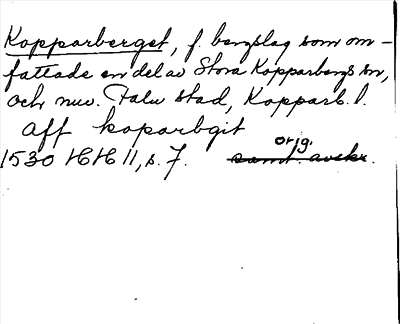 Kopparberget, f. bergslag som om-
fattade en del av Stora Kopparbergs sn,
och nuv. Falu stad, Kopparb. l.
aff koparbgit
orig.
1530 HH 11, s. 7. samt. avskr.